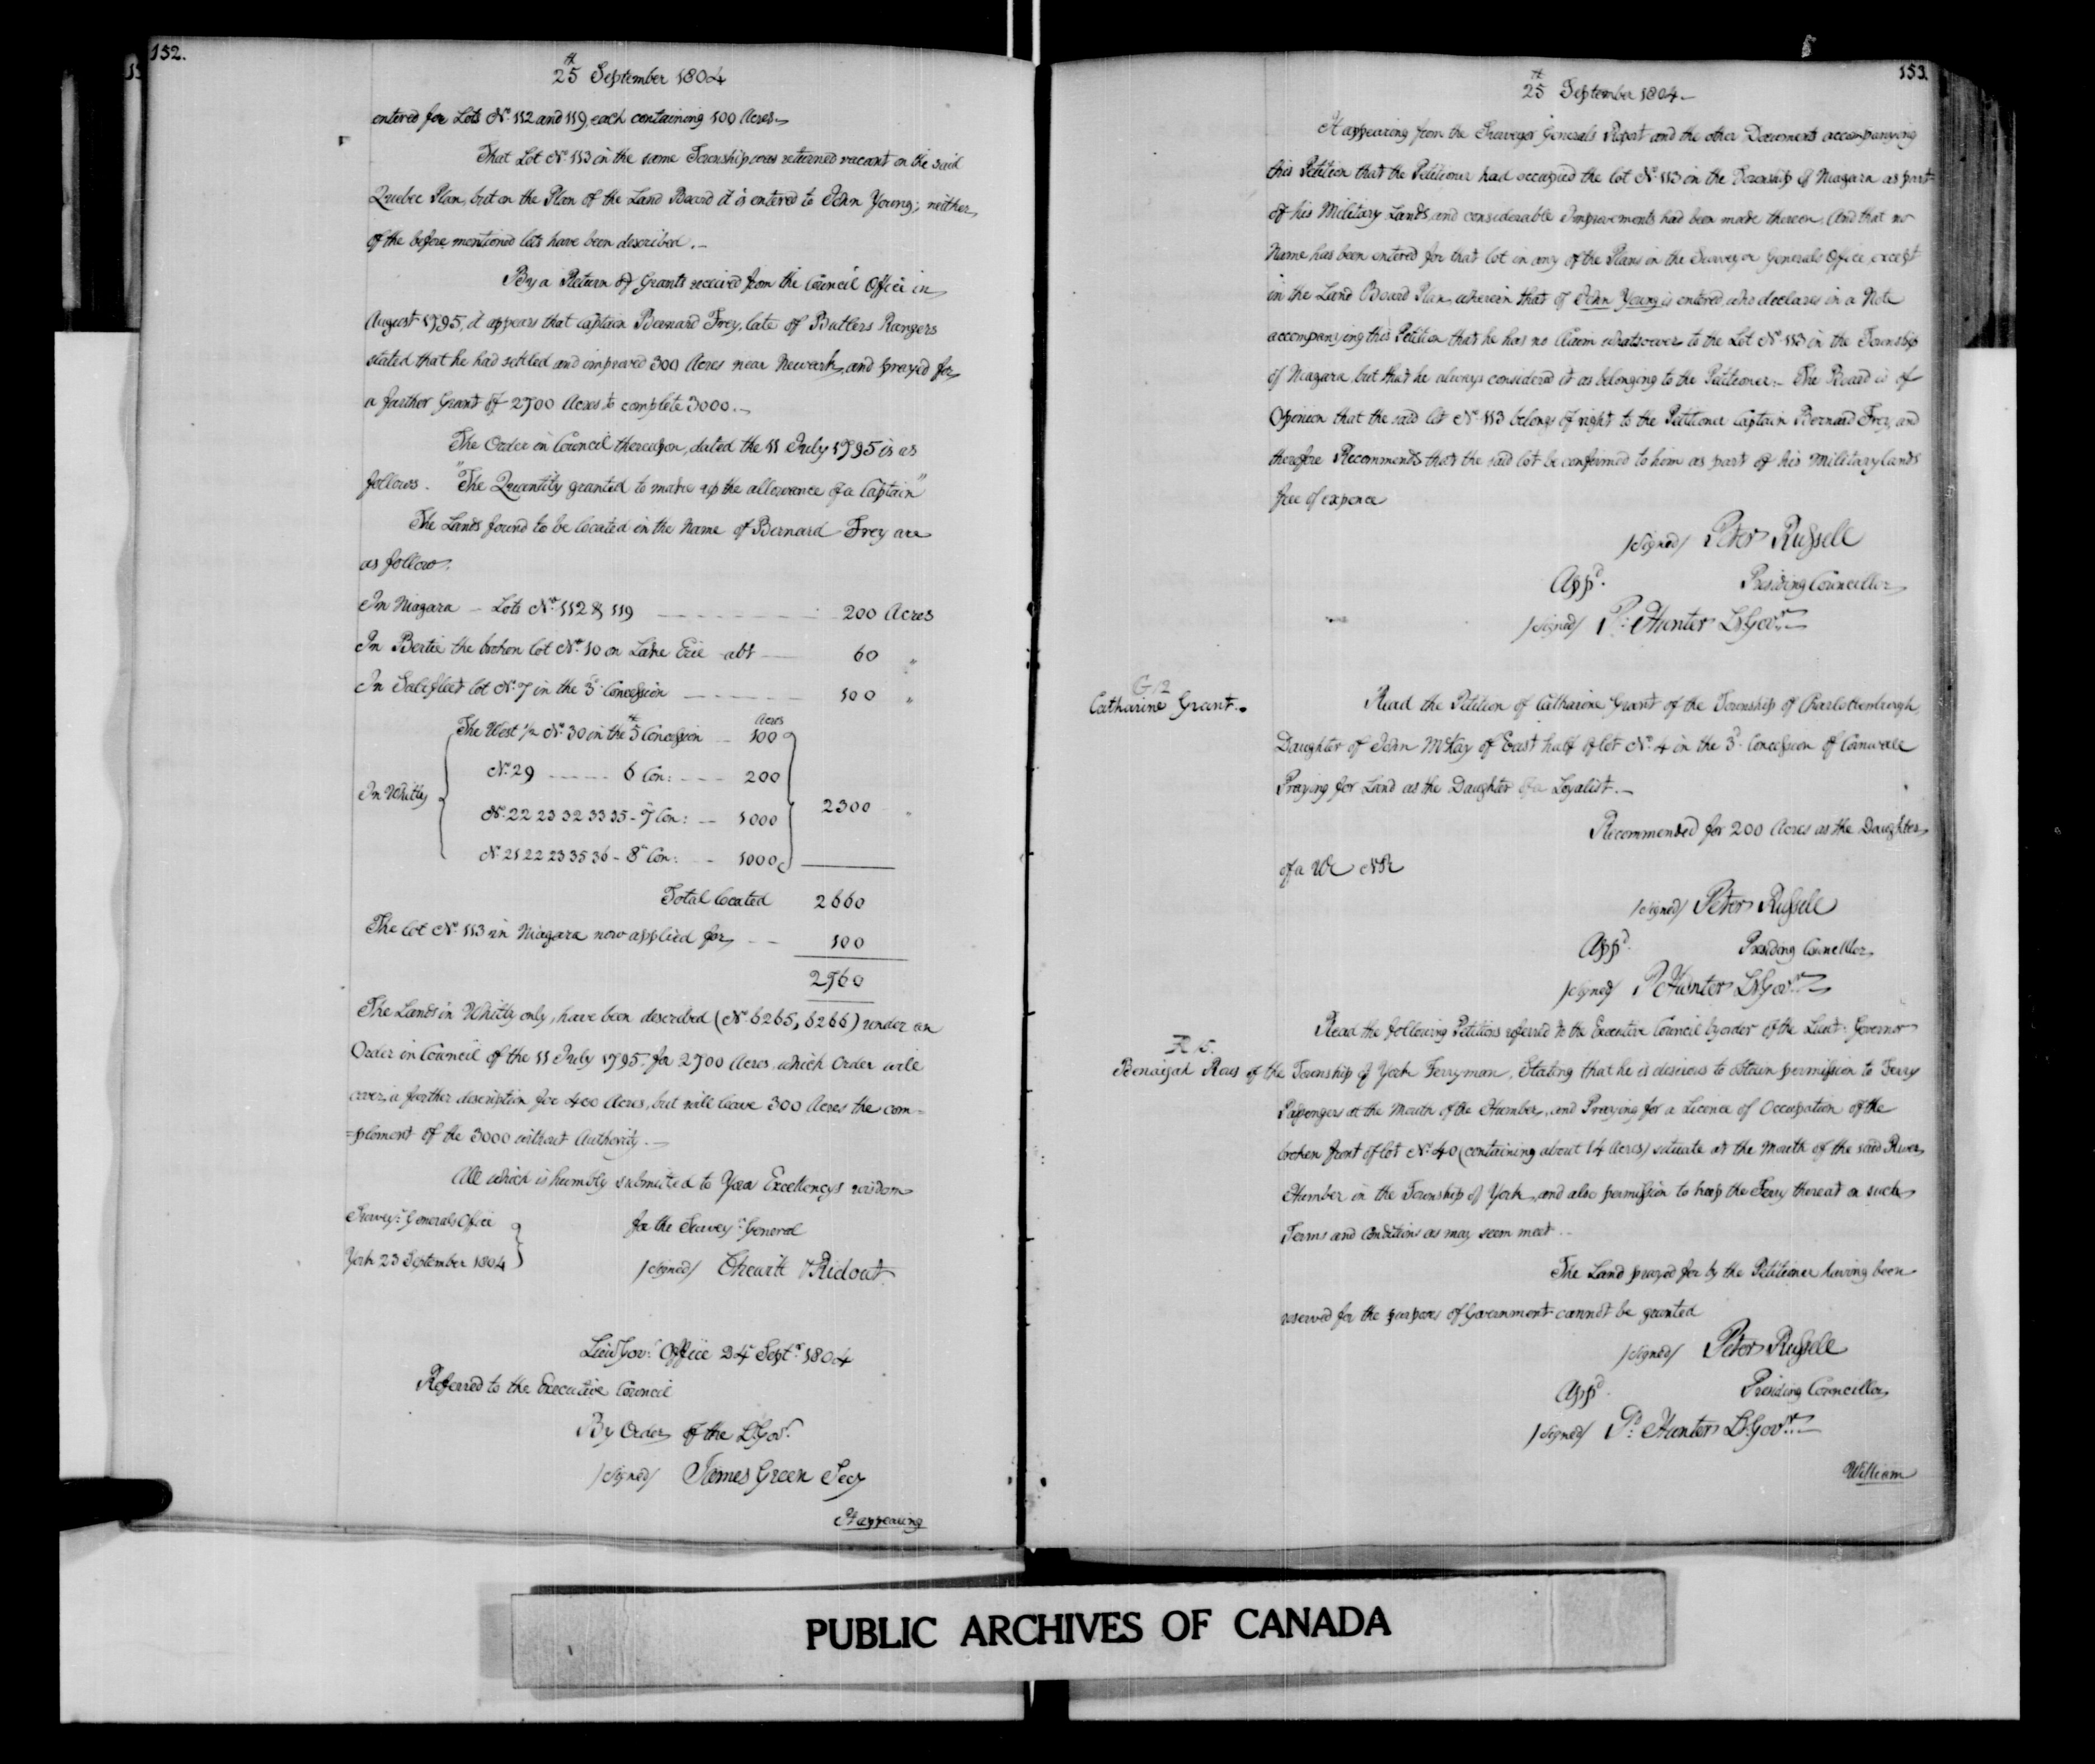 152.
25th September 1804
entered for Lots No. 112 and 119, each containing 100 Acres
That Lot No. 113 in the same Township was returned vacant on the said
Quebec Plan, but on the Plan of the Land Board it is entered to John Young; neither
of the before mentioned lots have been described. —
By a Return of Grants received from the Council Office in
August 1795, it appears that Captain Bernard Frey, late of Butlers Rangers
stated that he had settled and improved 300 Acres near Newark, and prayed for
a farther Grant of 2700 Acres to complete 3000. —
The Order in Council thereupon, dated the 11 July 1795 is as
follows. "The Quantity granted to make up the allowance of a Captain"
The Lands found to be located in the Name of Bernard Frey are
as follow.
In Niagara — Lots No. 112 & 119 200 Acres
In Bertie the broken lot No. 10 on Lake Erie abt 60 "
In Saltfleet lot No. 7 in the 3d Concession 100 "
Acres
The West 1/2 No. 30 in the 5th Concession — 100
No. 29 6 Con: 200
In Whitby 2300 "
No. 22 23 32 33 35 - 7 Con: — 1000
No. 21 22 23 35 36 - 8th Con: — 1000
Total located 2660
The lot No. 113 in Niagara now applied for — 100
2760
The Lands in Whitby only, have been described (No. 6265, 6266) under an
Order in Council of the 11 July 1795, for 2700 Acres, which Order will
cover a farther description for 400 Acres, but will leave 300 Acres the com=
=plement of the 3000 without Authority. —
All which is humbly submitted to Your Excellencys wisdom
Surveyr. Generals Office for the Surveyr. General
York 23 September 1804 /signed/ Chewitt & Ridout
Lieut Govr. Office 24 Septr. 1804
Referred to the Executive Council
By Order of the Lt. Govr.
/signed/ James Green Secy
It appearing
153.
25th September 1804 —
It appearing from the Surveyor Generals Report and the other Documents accompanying
this Petition that the Petitioner had occupied the lot No. 113 in the Township of Niagara as part
of his Military Lands, and considerable Improvements had been made thereon, And that no
Name has been entered for that lot in any of the Plans in the Surveyor Generals Office, except
in the Land Board Plan, wherein that of John Young is entered who declares in a Note
accompanying this Petition that he has no Claim whatsoever to the Lot No. 113 in the Township
of Niagara, but that he always considered it as belonging to the Petitioner. — The Board is of
Opinion that the said lot No. 113 belongs of right to the Petitioner Captain Bernard Frey, and
therefore Recommends that the said lot be confirmed to him as part of his Military lands
free of expence
/signed/ Peter Russell
Appd. Presiding Councillor
/signed/ P: Hunter Lt. Govr.
G 12
Catharine Grant. Read the Petition of Catharine Grant of the Township of Charlottenburgh,
Daughter of John McKay of East half of lot No. 4 in the 3d. Concession of Cornwall
Praying for Land as the Daughter of a Loyalist. —
Recommended for 200 Acres as the Daughter
of a UE NR
/signed/ Peter Russell
Appd. Presiding Councillor
/signed/ P Hunter Lt. Govr.
Read the following Petitions referred to the Executive Council by order of the Lieut: Governor
R 15.
Benaijah Ross of the Township of York Ferryman, Stating that he is desirous to obtain permission to Ferry
Passengers at the Mouth of the Humber, and Praying for a Licence of Occupation of the
broken front of lot No. 40 (containing about 14 Acres) situate at the Mouth of the said River
Humber in the Township of York, and also permission to keep the Ferry thereat on such
Terms and Conditions as may seem meet. —
The Land prayed for by the Petitioner having been
reserved for the purposes of Government cannot be granted
/signed/ Peter Russell
Appd. Presiding Councillor
/signed/ P: Hunter Lt. Govr.
William
PUBLIC ARCHIVES OF CANADA